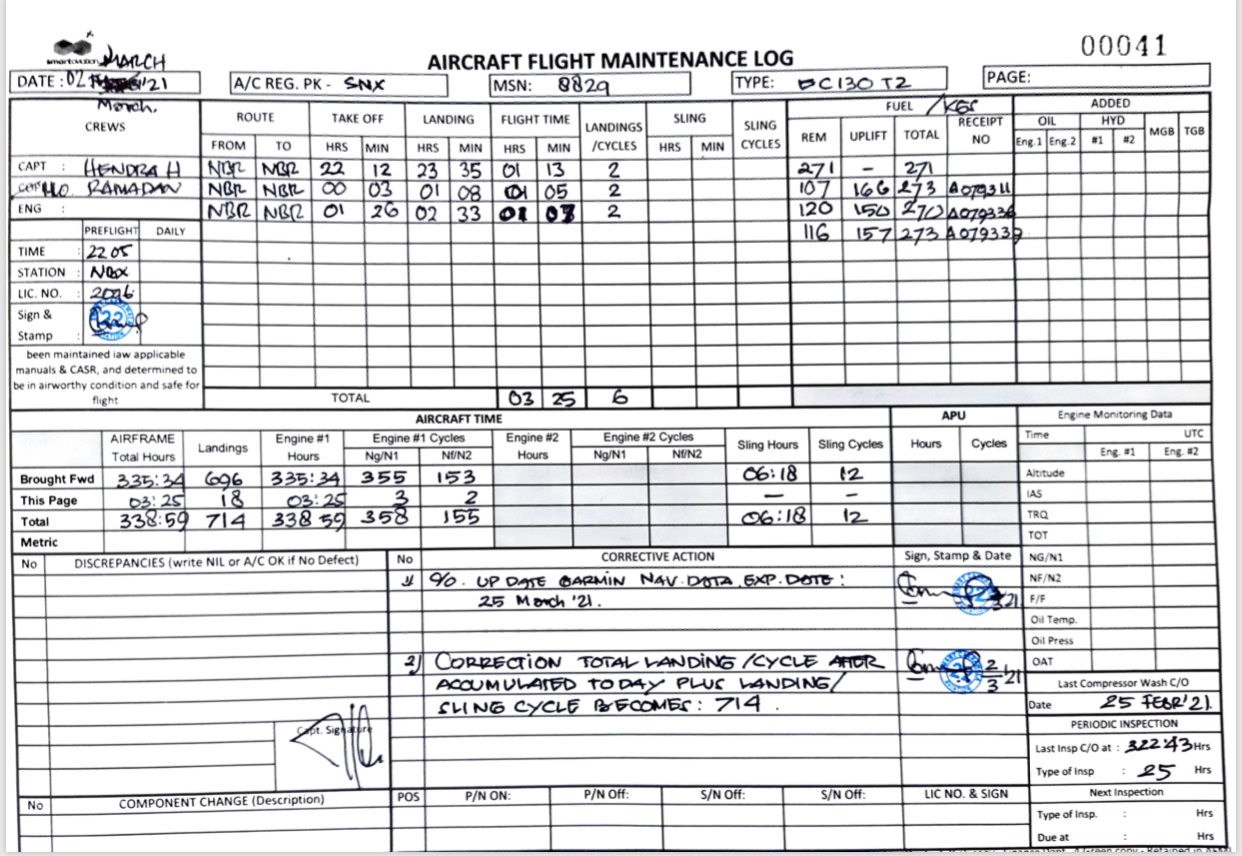 00041
smartaviation MARCH
AIRCRAFT FLIGHT MAINTENANCE LOG
DATE : 02 '21
March.
A/C REG. PK - SNX
MSN: 8829
TYPE: EC130 T2
PAGE:
CREWS ROUTE TAKE OFF LANDING FLIGHT TIME LANDINGS /CYCLES SLING SLING CYCLES FUEL /KGS ADDED
FROM TO HRS MIN HRS MIN HRS MIN HRS MIN REM UPLIFT TOTAL RECEIPT NO OIL HYD MGB TGB
Eng.1 Eng.2 #1 #2
CAPT : HENDRA H NBR NBR 22 12 23 35 01 13 2 271 - 271
RAMADAN NBR NBR 00 03 01 08 01 05 2 107 166 273 A079311
ENG : NBR NBR 01 26 02 33 01 07 2 120 150 270 A079336
116 157 273 A079337
PREFLIGHT DAILY
TIME : 2205
STATION :
LIC. NO. :
Sign &
Stamp : 22
been maintained iaw applicable
manuals & CASR, and determined to
be in airworthy condition and safe for
flight
TOTAL 03 25 6
AIRCRAFT TIME APU Engine Monitoring Data
AIRFRAME Total Hours Landings Engine #1 Hours Engine #1 Cycles Engine #2 Hours Engine #2 Cycles Sling Hours Sling Cycles Hours Cycles Time UTC
Ng/N1 Nf/N2 Ng/N1 Nf/N2 Eng. #1 Eng. #2
Brought Fwd 335:34 696 335:34 355 153 06:18 12 Altitude
This Page 03:25 18 03:25 3 2 — — IAS
Total 338:59 714 338 59 358 155 06:18 12 TRQ
Metric TOT
No DISCREPANCIES (write NIL or A/C OK if No Defect) No CORRECTIVE ACTION Sign, Stamp & Date NG/N1
1) C/O. UP DATE GARMIN NAV. DATA EXP. DATE : NF/N2
25 March '21. F/F
Oil Temp.
Oil Press
2) CORRECTION TOTAL LANDING /CYCLE AFTER 2/3 '21 OAT
ACCUMULATED TODAY PLUS LANDING/ Last Compressor Wash C/O
SLING CYCLE BECOMES : 714 . Date 25 FEBR'21.
Capt. Signature
PERIODIC INSPECTION
Last Insp C/O at : 322:43 Hrs
Type of Insp : 25 Hrs
No COMPONENT CHANGE (Description) POS P/N ON: P/N Off: S/N Off: S/N Off: LIC NO. & SIGN Next Inspection
Type of Insp. : Hrs
Due at : Hrs